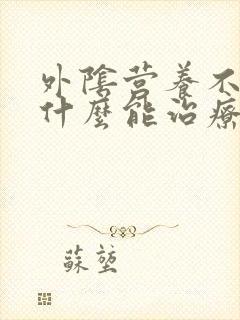 外陰营養不
什麼能治療
蘇堃